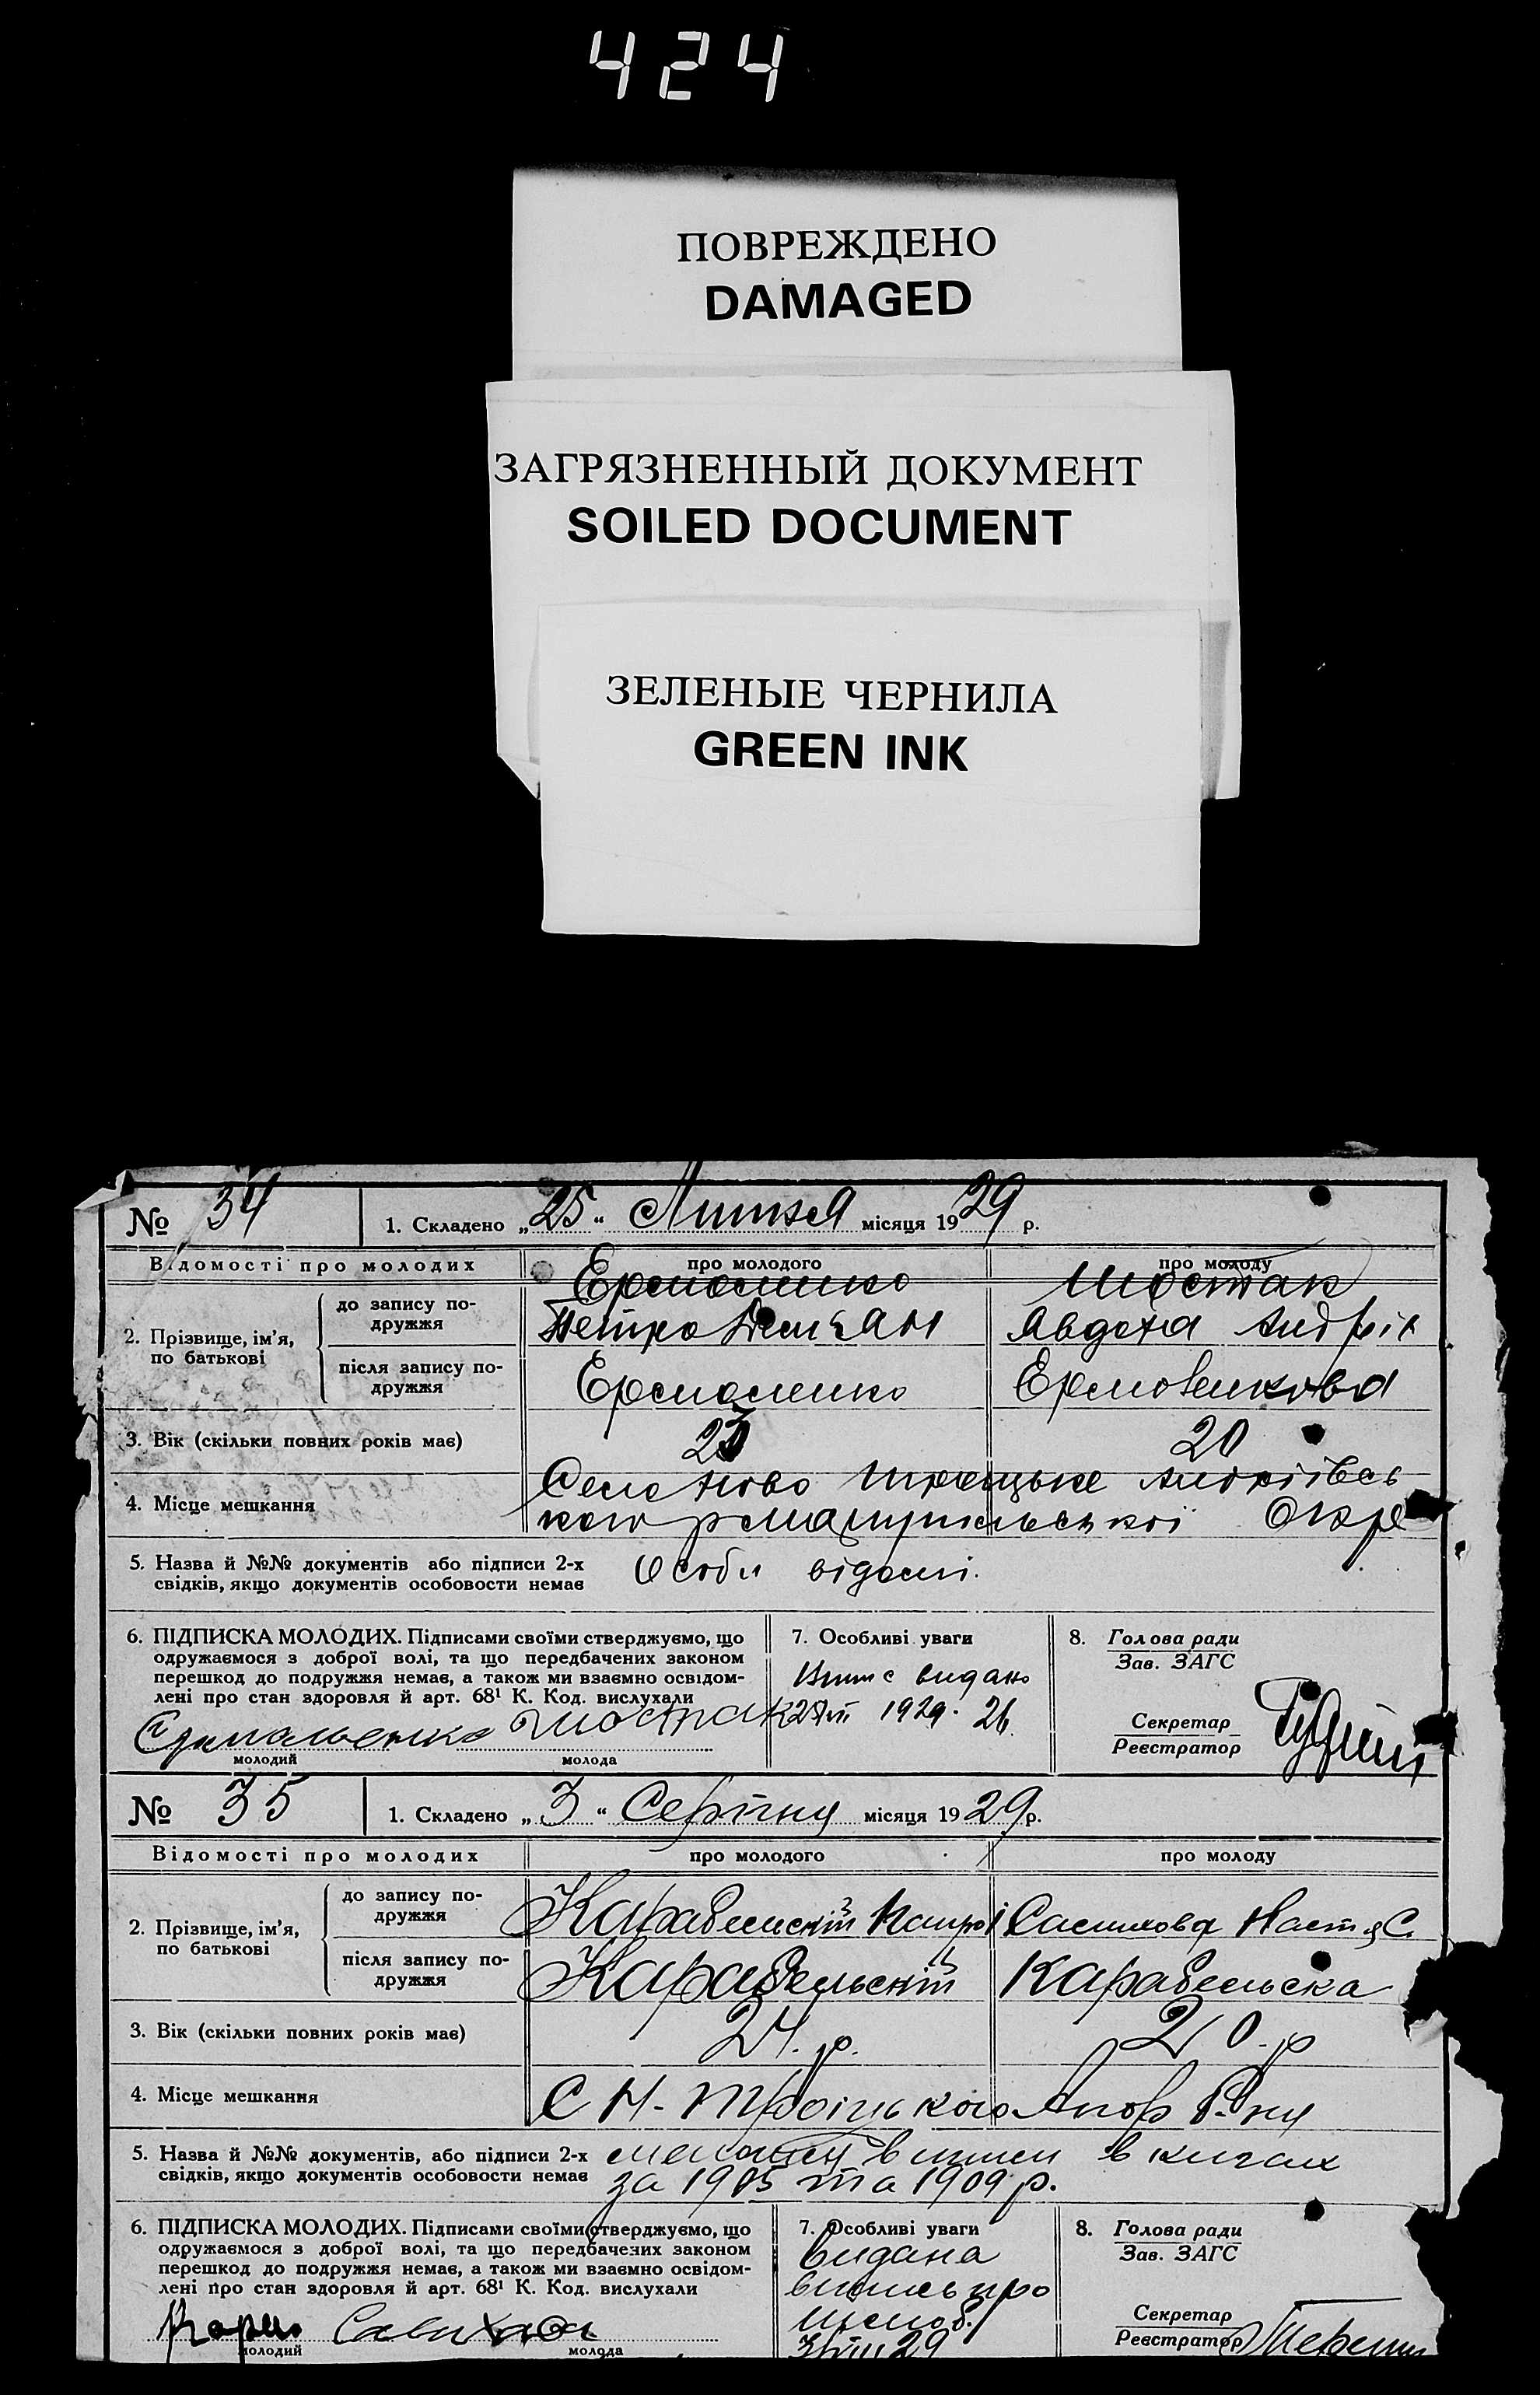 424
ПОВРЕЖДЕНО
DAMAGED
ЗАГРЯЗНЕННЫЙ ДОКУМЕНТ
SOILED DOCUMENT
ЗЕЛЕНЫЕ ЧЕРНИЛА
GREEN INK
№ 34 1. Складено „25“ Липня місяця 1929 р.
Відомості про молодих про молодого про молоду
Ермоленко Шостак
2. Прізвище, ім’я, по батькові
до запису подружжя Петро Авдотя Андрі
після запису подружжя Ермоленко
3. Вік (скільки повних років має) 23 20
4. Місце мешкання Село Ново Троіцьке
Маріупільської Окр
5. Назва й №№ документів або підписи 2-х Особи відомі.
свідків, якщо документів особовости немає
6. ПІДПИСКА МОЛОДИХ. Підписами своїми стверджуємо, що
одружаємося з доброї волі, та що передбачених законом
перешкод до подружжя немає, а також ми взаємно освідом-
лені про стан здоровля й арт. 68¹ К. Код. вислухали
Шостак
молодий молода
7. Особливі уваги
видано
1929. 26
8. Голова ради
Зав. ЗАГС
Секретар
Реєстратор
№ 35 1. Складено „3“ Серпня місяця 1929 р.
Відомості про молодих про молодого про молоду
2. Прізвище, ім’я, по батькові
до запису подружжя Карабельскій Настя С.
після запису подружжя Карабельскій Карабельска
3. Вік (скільки повних років має) 24. р. 20. р
4. Місце мешкання С Н-Троіцького
5. Назва й №№ документів, або підписи 2-х в кигах
свідків, якщо документів особовости немає за 1905 та 1909 р.
6. ПІДПИСКА МОЛОДИХ. Підписами своїми стверджуємо, що
одружаємося з доброї волі, та що передбачених законом
перешкод до подружжя немає, а також ми взаємно освідом-
лені про стан здоровля й арт. 68¹ К. Код. вислухали
молодий молода
7. Особливі уваги
видана
випись про
шлюб.
8. Голова ради
Зав. ЗАГС
Секретар
Реєстратор